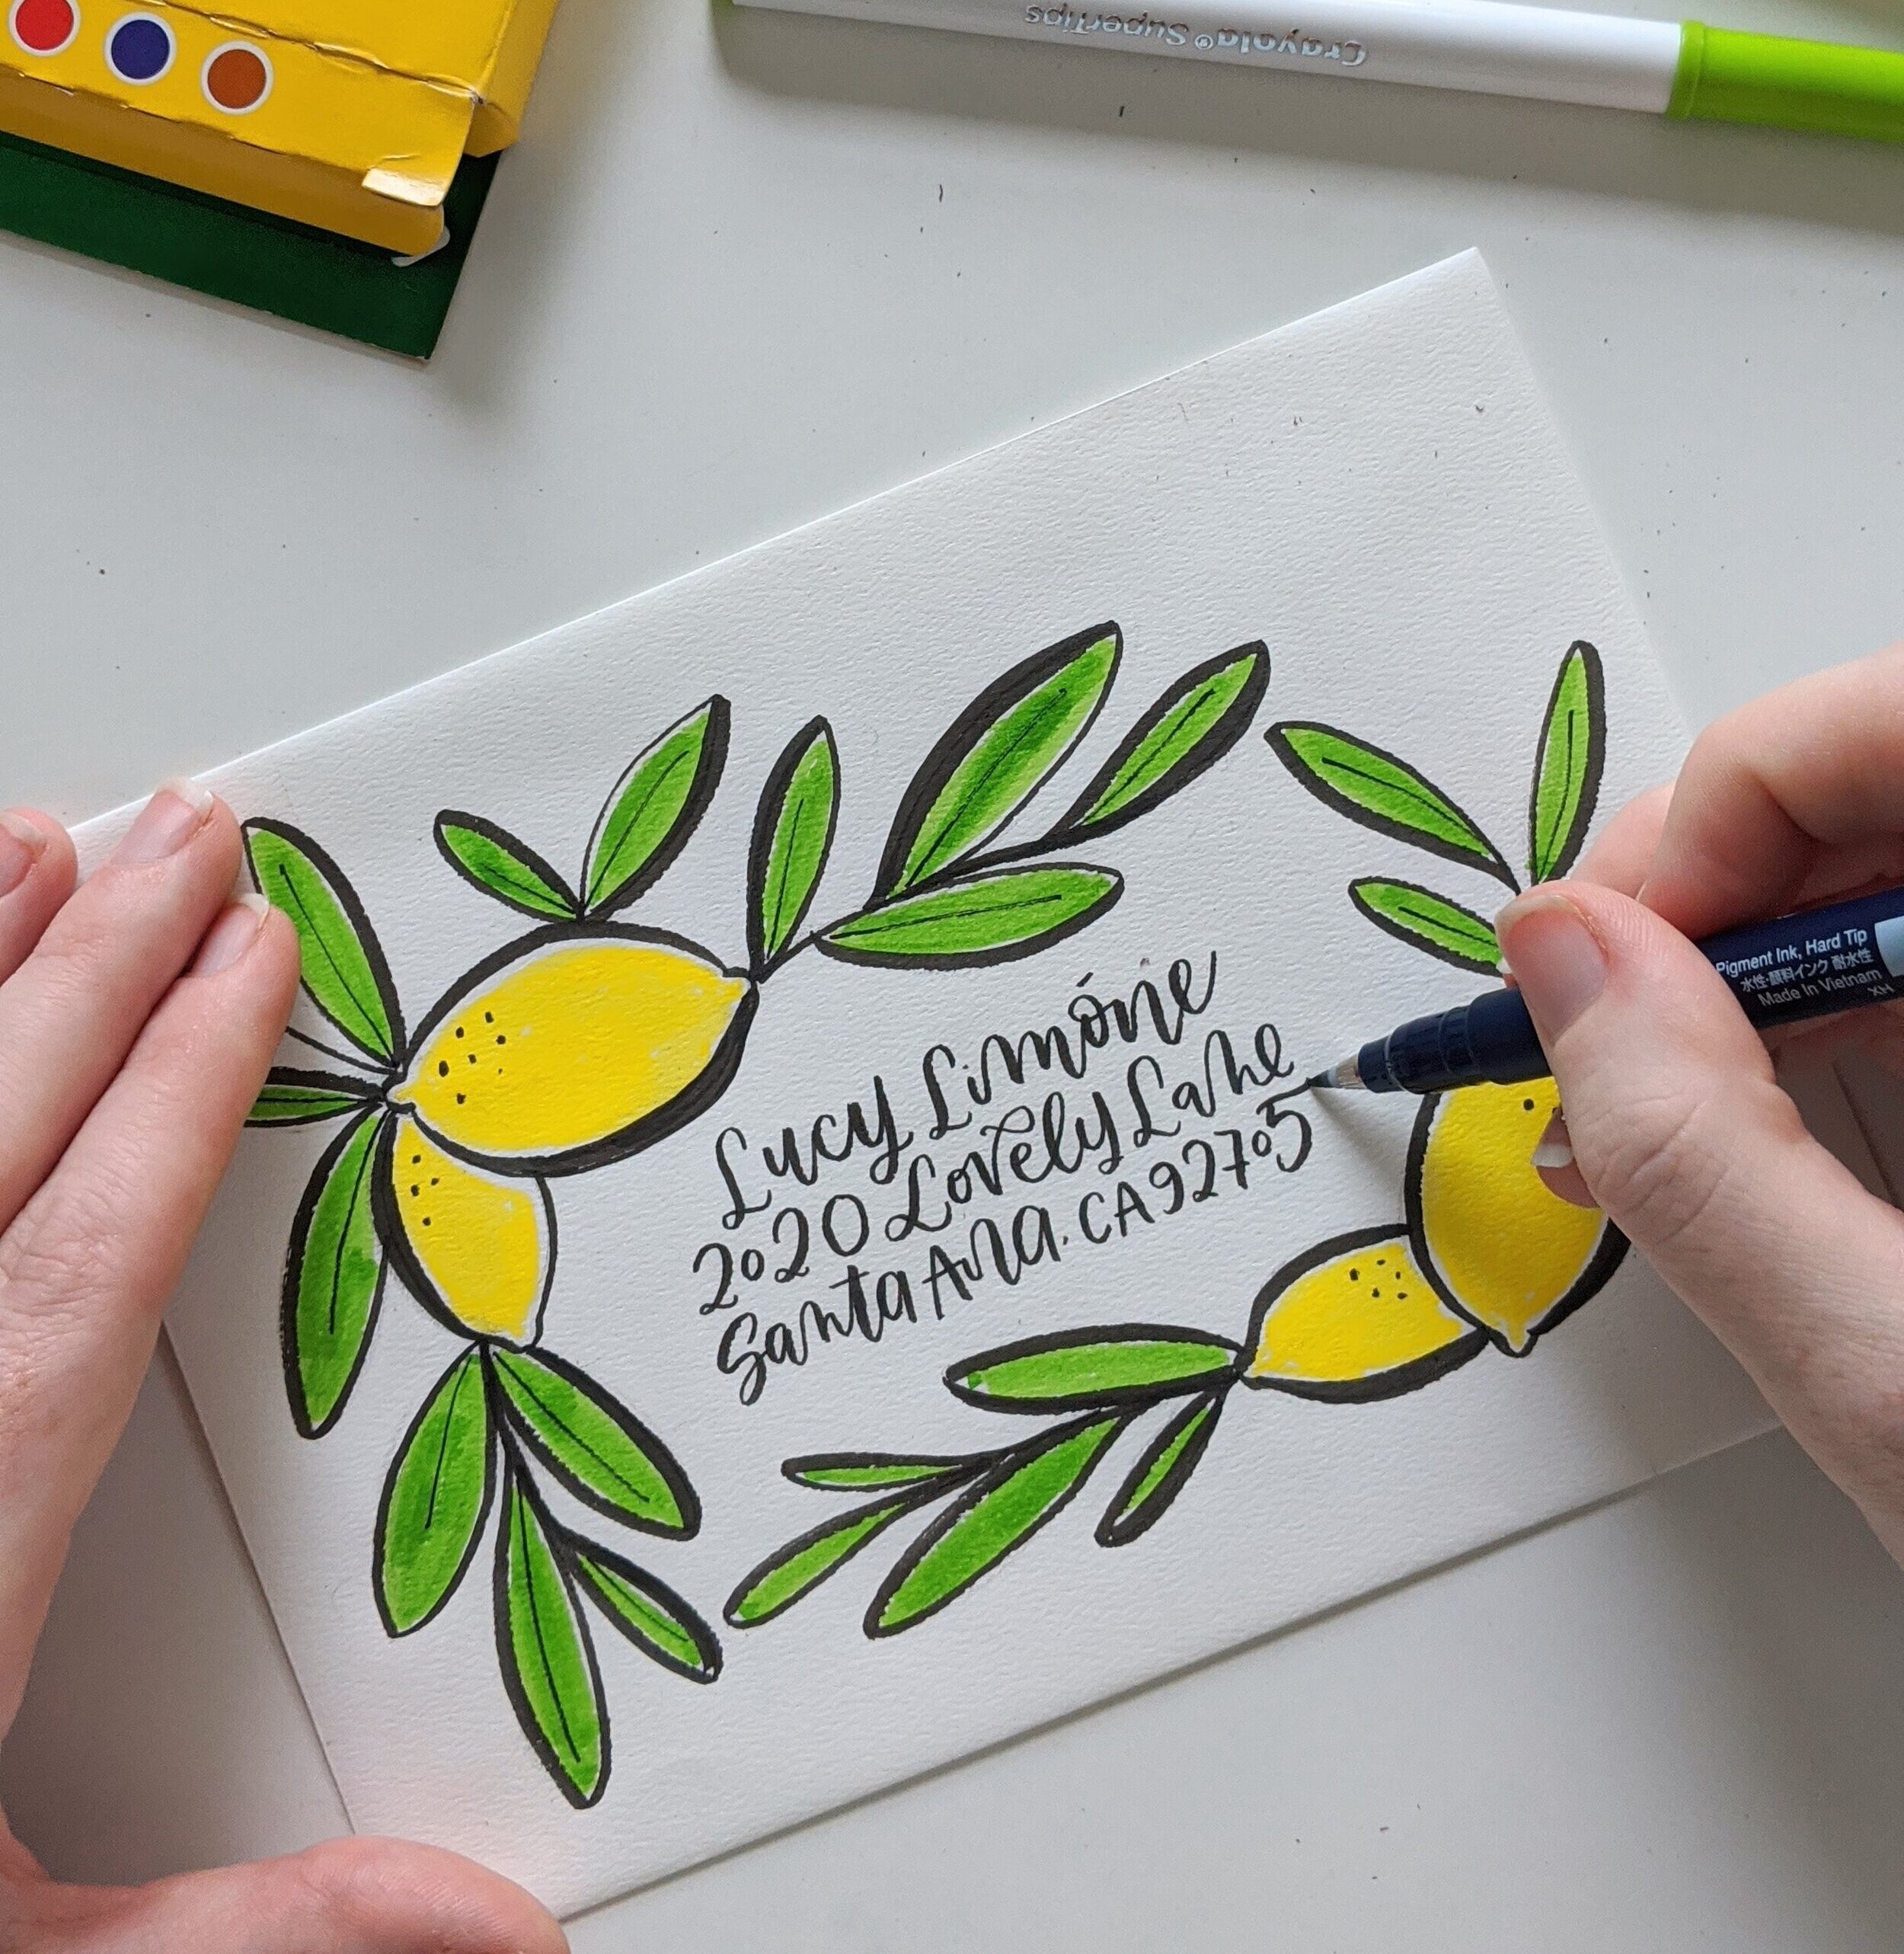 Crayola® SuperTips
Lucy Limóne
2020 Lovely Lane
Santa Ana. CA 92705
Pigment Ink, Hard Tip
水性・顔料インク 耐水性
Made In Vietnam
XH